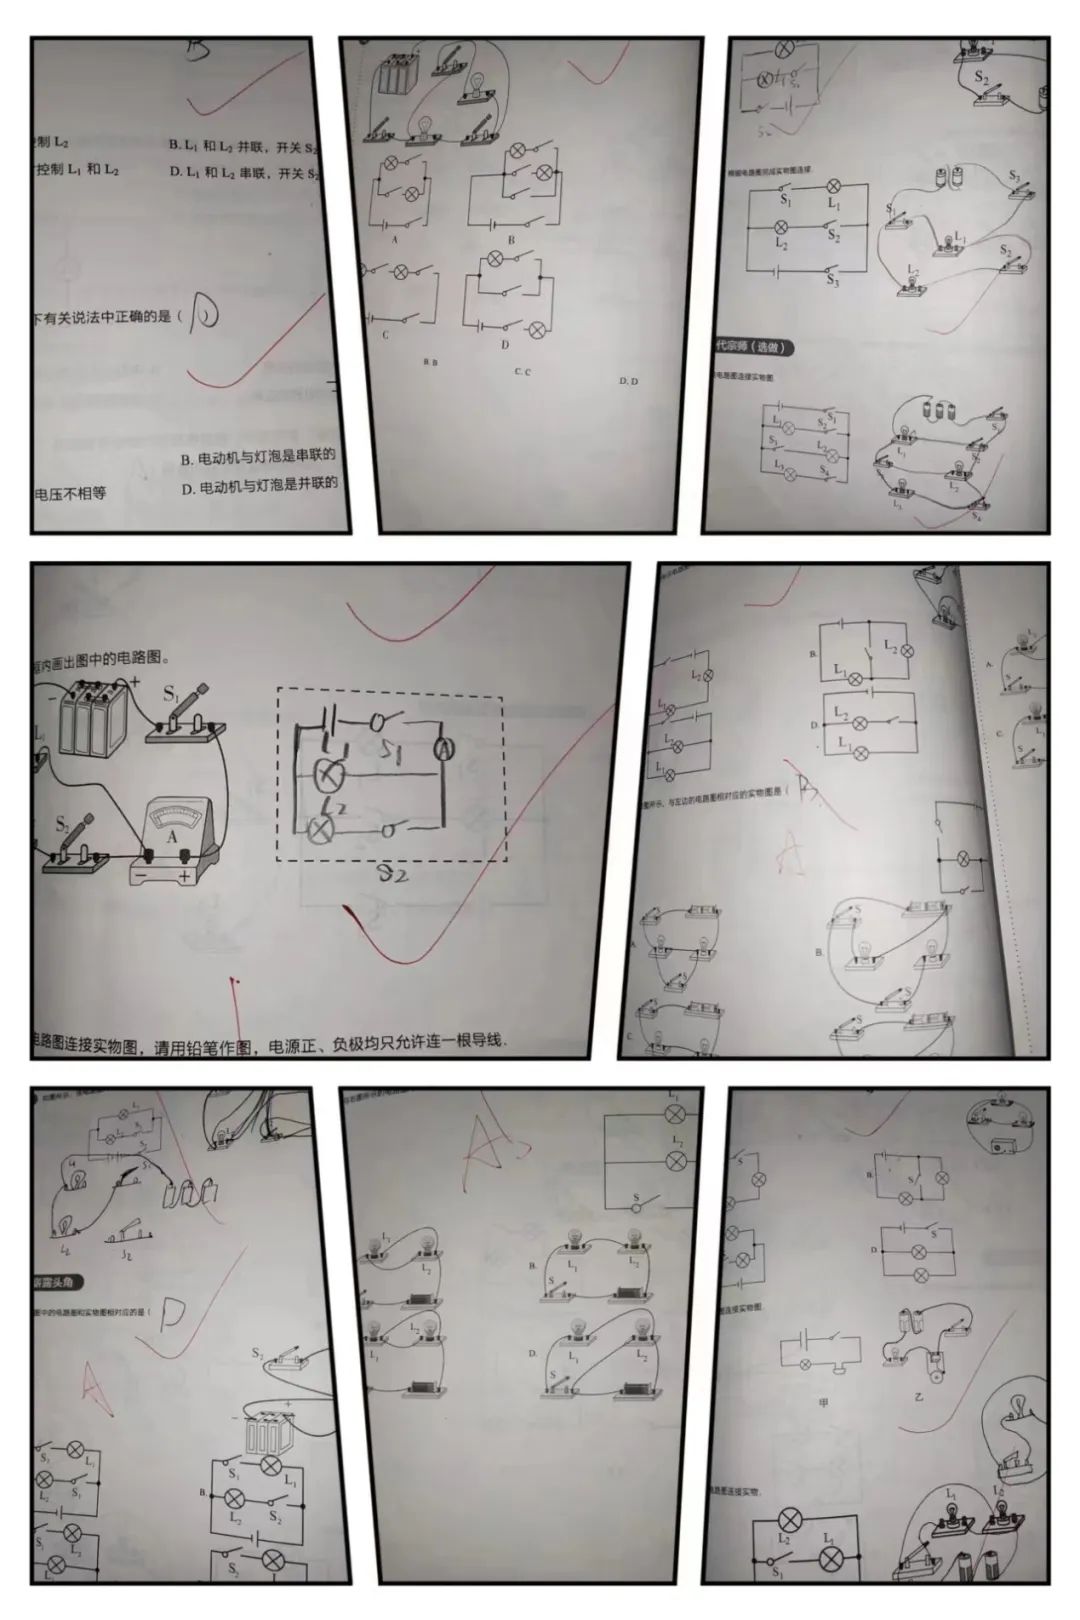 B
控制 L₂
B. L₁ 和 L₂ 并联，开关 S₂
控制 L₁ 和 L₂
D. L₁ 和 L₂ 串联，开关 S₂
下有关说法中正确的是（ D
B. 电动机与灯泡是串联的
电压不相等
D. 电动机与灯泡是并联的
A
B
C
D
B. B
C. C
D. D
S₂
根据电路图完成实物图连接.
S₁ L₁
L₂ S₂
S₃
S₁ S₃
L₁
S₂
L₂
代宗师（选做）
电路图连接实物图
S₁
L₁ S₂
S₃ L₂
L₃ S₄
L₁ S₂
L₂
L₃ S₄
框内画出图中的电路图。
- +
S₁
L₁
S₂
A
- +
S₁
A
L₁
L₂
S₂
电路图连接实物图，请用铅笔作图，电源正、负极均只允许连一根导线.
L₂
L₁
B.
L₂
L₁
L₂
L₁
D.
L₂
L₁
A.
S
C.
S
图所示，与左边的电路图相对应的实物图是（ B
A
A.
S
S
B.
S
S
C.
S
S
如图所示，
L₂
S₂
崭露头角
图中的电路图和实物图相对应的是（ D
A
S₂
- +
S₁ L₁
L₂ S₂
B.
S₁ L₁
L₂ S₂
S₁ L₂
L₁
S₂
A
L₁
L₂
S
L₁
L₂
B.
L₁ L₂
S
L₁ L₂
D.
L₁ L₂
S
S
B.
S
D.
S
图连接实物图.
甲
乙
电路图连接实物.
L₂
S₁ L₁
L₁ L₂